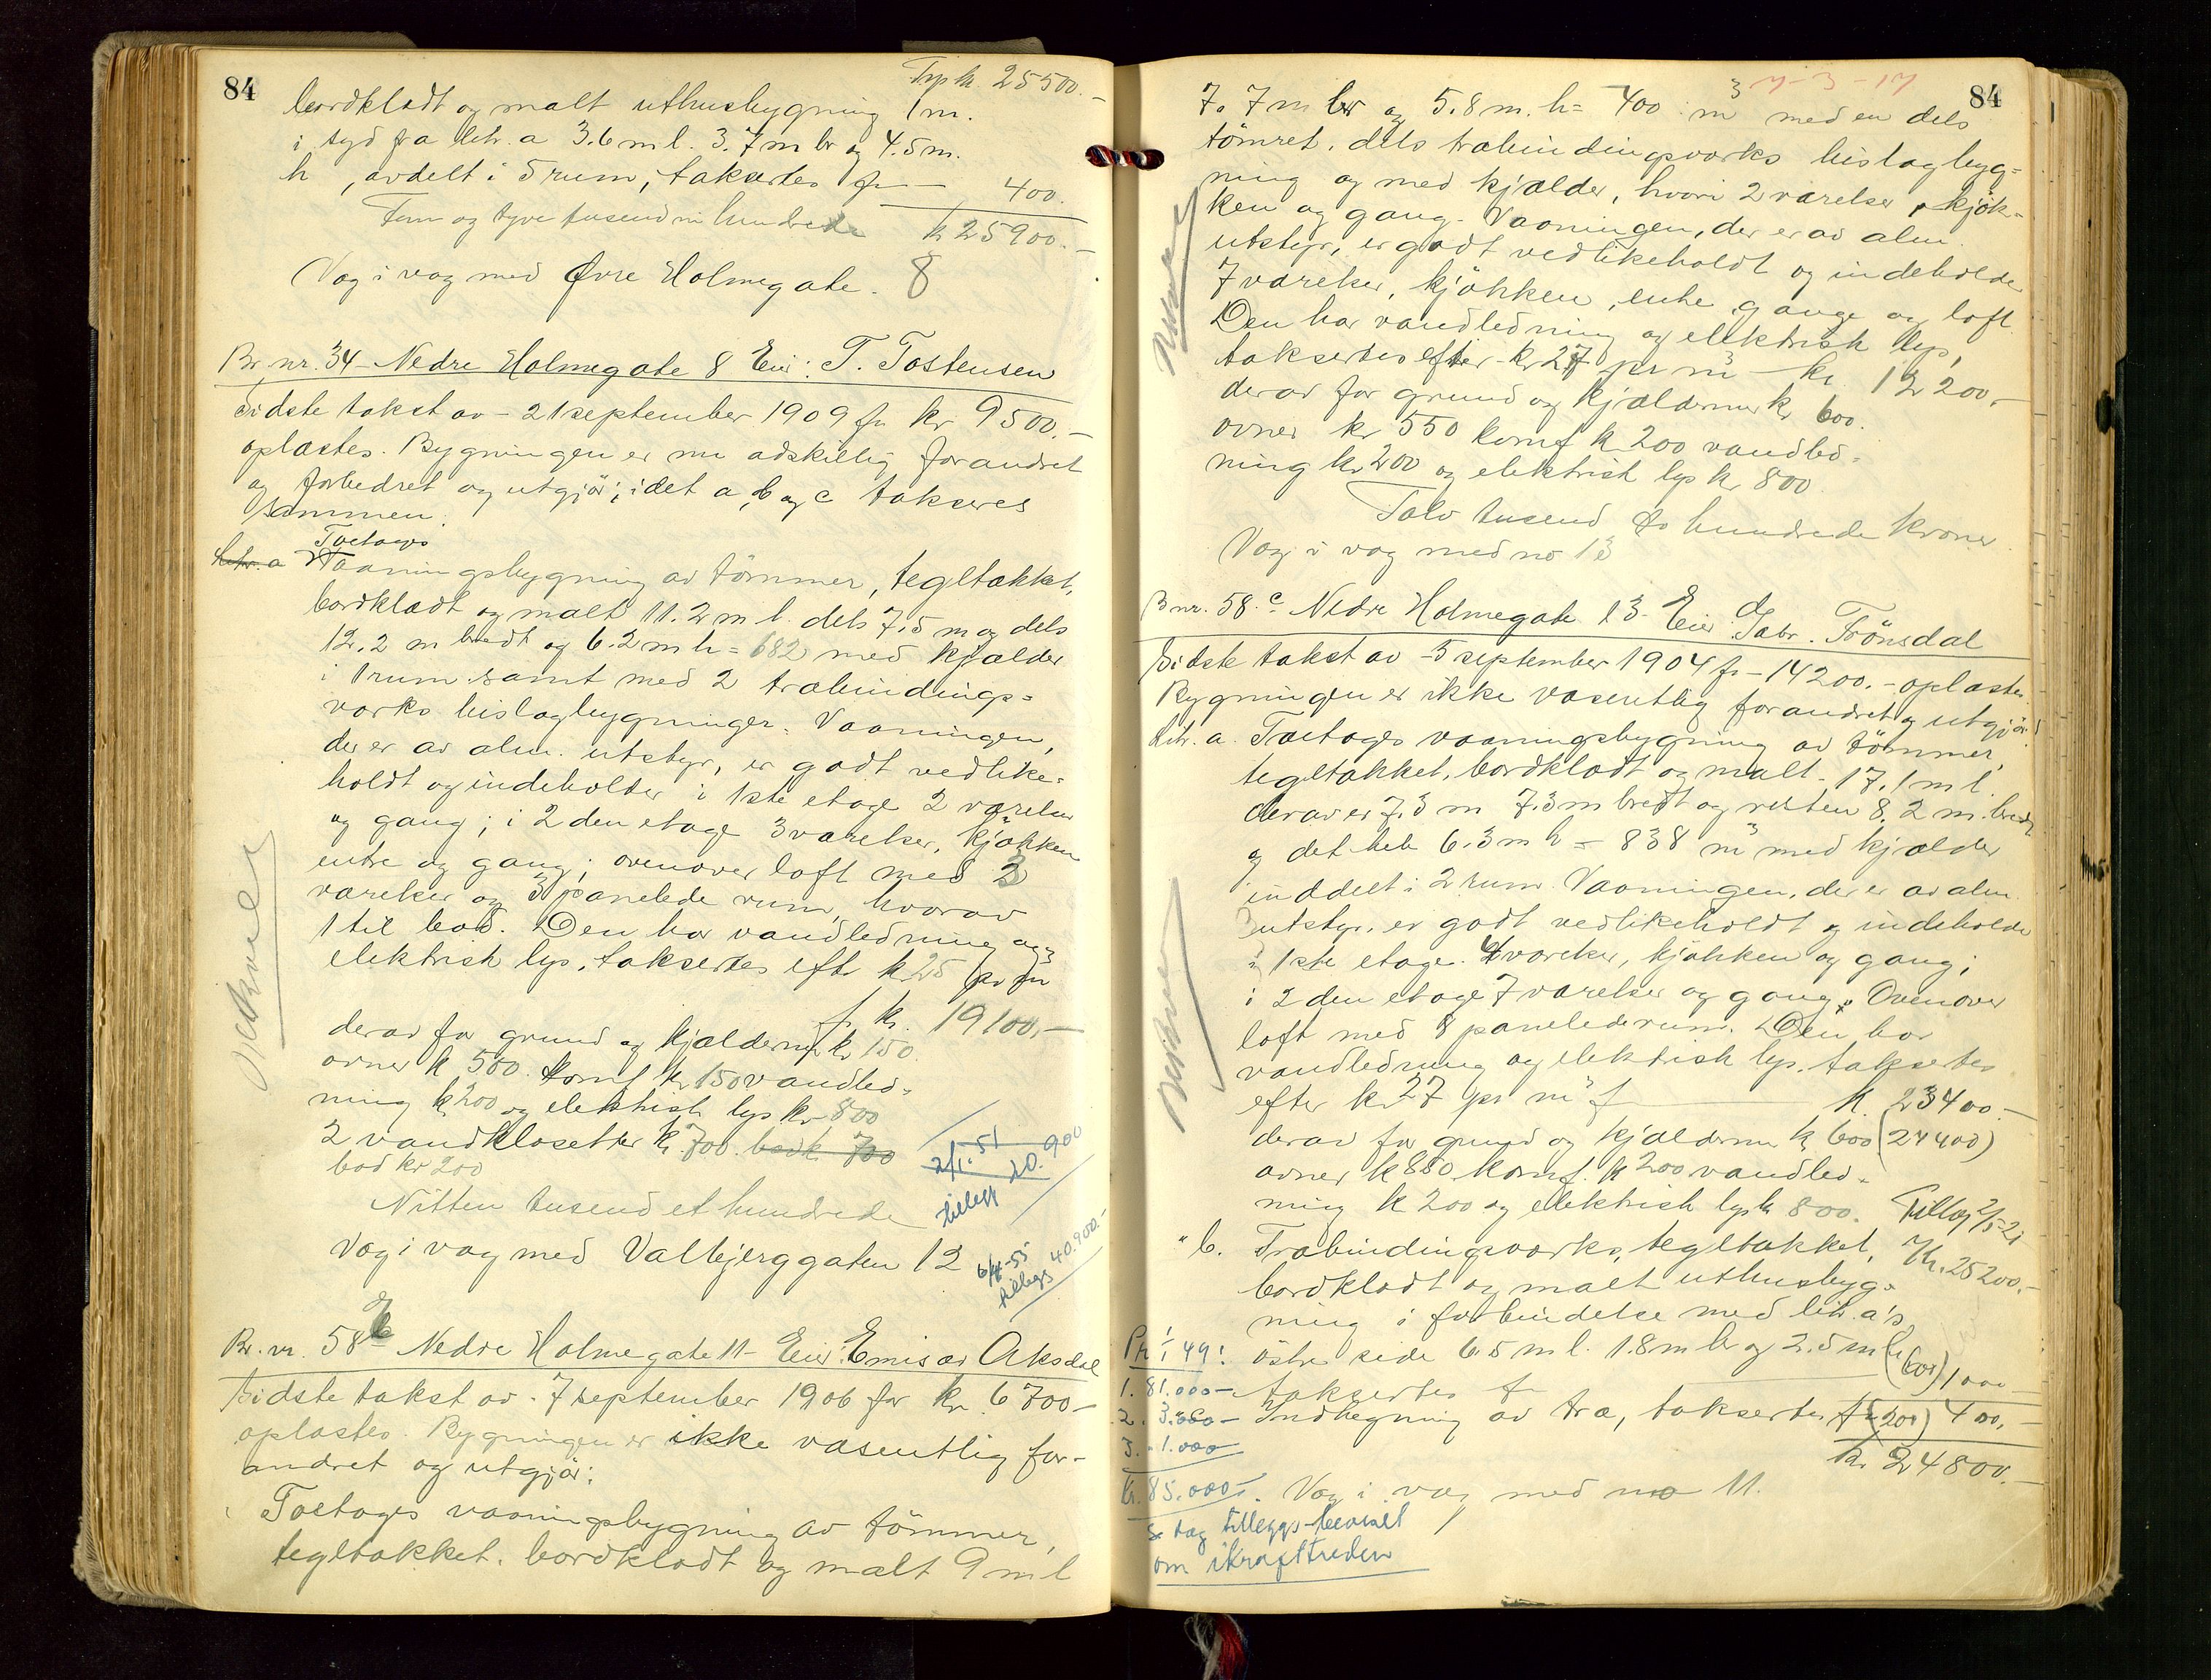 84
Trp kr 25500.-
bordklædt og malt uthusbygning 1 m.
i syd fra litr. a 3.6 m l. 3.7 m br og 4.5 m.
h , avdelt i 5 rum, taksertes for — 400.
Fem og tyve tusend ni hundrede kr 25900.-
Væg i væg med Øvre Holmegate. 8
Br. nr. 34 - Nedre Holmegate 8 Eier: T. Tostensen
Sidste takst av - 21 september 1909 for kr 9500.-
oplæstes. Bygningen er nu adskillig forandret
og forbedret og utgjør; idet a, b og c takseres
sammen.
Toetages
Litr. a Vaaningsbygning av tömmer, tegltækket,
bordklædt og malt 11.2 m l. dels 7.5 m og dels
12.2 m bredt og 6.2 m h = 682 med kjælder
i 1 rum samt med 2 træbindings=
værks bislagbygninger. Vaaningen,
der er av alm. utstyr, er godt vedlike=
holdt og indeholder i 1ste etage 2 værelser
og gang; i 2den etage 3 værelser, kjøkken
entre og gang; ovenover loft med 2
værelser og 3 panelede rum, hvorav
1 til bad. Den har vandledning og
elektrisk lys, taksertes efter kr 25 pr m3
for kr. 19100,-
derav for grund og kjældermur kr 150.
ovner kr 500. komf kr 150 vandled=
ning kr 200 og elektrisk lys kr 800
2 vandklosetter kr 700. bad kr 700
bad kr 200
2/1.51
20.900
tillegg
Nitten tusend et hundrede
Væg i væg med Valbjerggaten 12
6/4-55
tillegg 40.900.-
Br. nr. 58 b Nedre Holmegate 11 - Eier: Emis av Aksdal
Sidste takst av - 7 september 1906 for kr. 6700-
oplæstes. Bygningen er ikke væsentlig for-
andret og utgjør:
Toetages vaaningsbygning av tömmer,
tegltækket, bordklædt og malt 9 m l
84
7-3-17
7. 7 m br og 5.8 m. h = 400 m3 med en dels
tömret, dels træbindingsværks bislagbyg=
ning og med kjælder, hvori 2 værelser, kjøk=
ken og gang. Vaaningen, der er av alm.
utstyr, er godt vedlikeholdt og indeholder
7 værelser, kjøkken, entre, gange og loft.
Den har vandledning og elektrisk lys,
taksertes efter kr 27 pr m3 — kr. 12200,-
derav for grund og kjældermur kr 600.
ovner kr 550 komf kr 200 vandled=
ning kr 200 og elektrisk lys kr 800.
Tolv tusend to hundrede kroner
Væg i væg med no 13
Br. nr. 58 c Nedre Holmegate 13 - Eier: Gabr. Trönsdal
Sidste takst av - 5 september 1904 for - 14200.- oplæstes
Bygningen er ikke væsentlig forandret og utgjør
Litr. a. Toetages vaaningsbygning av tömmer,
tegltækket, bordklædt og malt - 17.1 m l.
derav er 7.3 m 7.3 m bredt og resten 8.2 m. bredt
og det hele 6.3 m h = 838 m3 med kjælder
inddelt i 2 rum. Vaaningen, der er av alm.
utstyr, er godt vedlikeholdt og indeholder
i 1ste etage 4 værelser, kjøkken og gang;
i 2den etage 7 værelser og gang. Ovenover
loft med 8 panelede rum. Den har
vandledning og elektrisk lys, taksertes
efter kr 27 pr m3 f — kr. 23400.-
derav for grund og kjældermur kr 600 (24400)
ovner kr 850 komf. kr 200 vandled=
ning kr 200 og elektrisk lys kr 800. Tillæg 2/5-21
" b. Træbindingsværks, tegltækket, Kr. 25200.-
bordklædt og malt uthusbyg=
ning i forbindelse med litr. a's
østre side 6.5 m l. 1.8 m br og 2.5 m h
taksertes for (600) 1000
Indhegning av træ, taksertes for (200) 400,-
kr. 24800.-
Pr 1/1 49!
1. 81.000-
2. 3.000-
3. 1.000
Kr. 85.000.-
Væg i væg med no 11.
Se dag tilleggs-beviset
om ikrafttreden